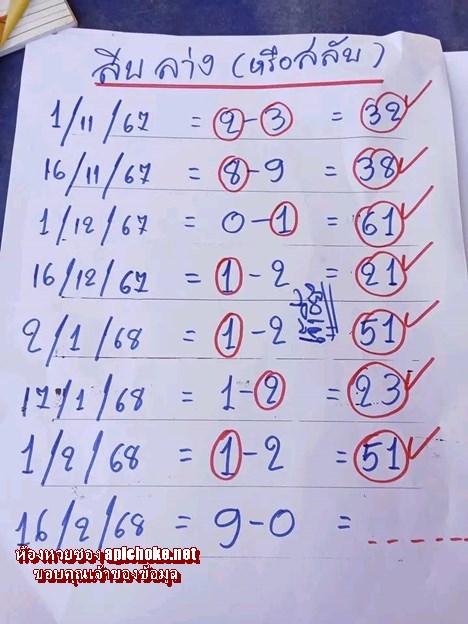 สิบล่าง (หรือสลับ)
1/11/67 = 2-3 = 32
16/11/67 = 8-9 = 38
1/12/67 = 0-1 = 61
16/12/67 = 1-2 = 21
2/1/68 = 1-2 = 51
17/1/68 = 1-2 = 23
1/2/68 = 1-2 = 51
16/2/68 = 9-0 = -----
ห้องหวยซอง apichoke.net
ขอบคุณเจ้าของข้อมูล